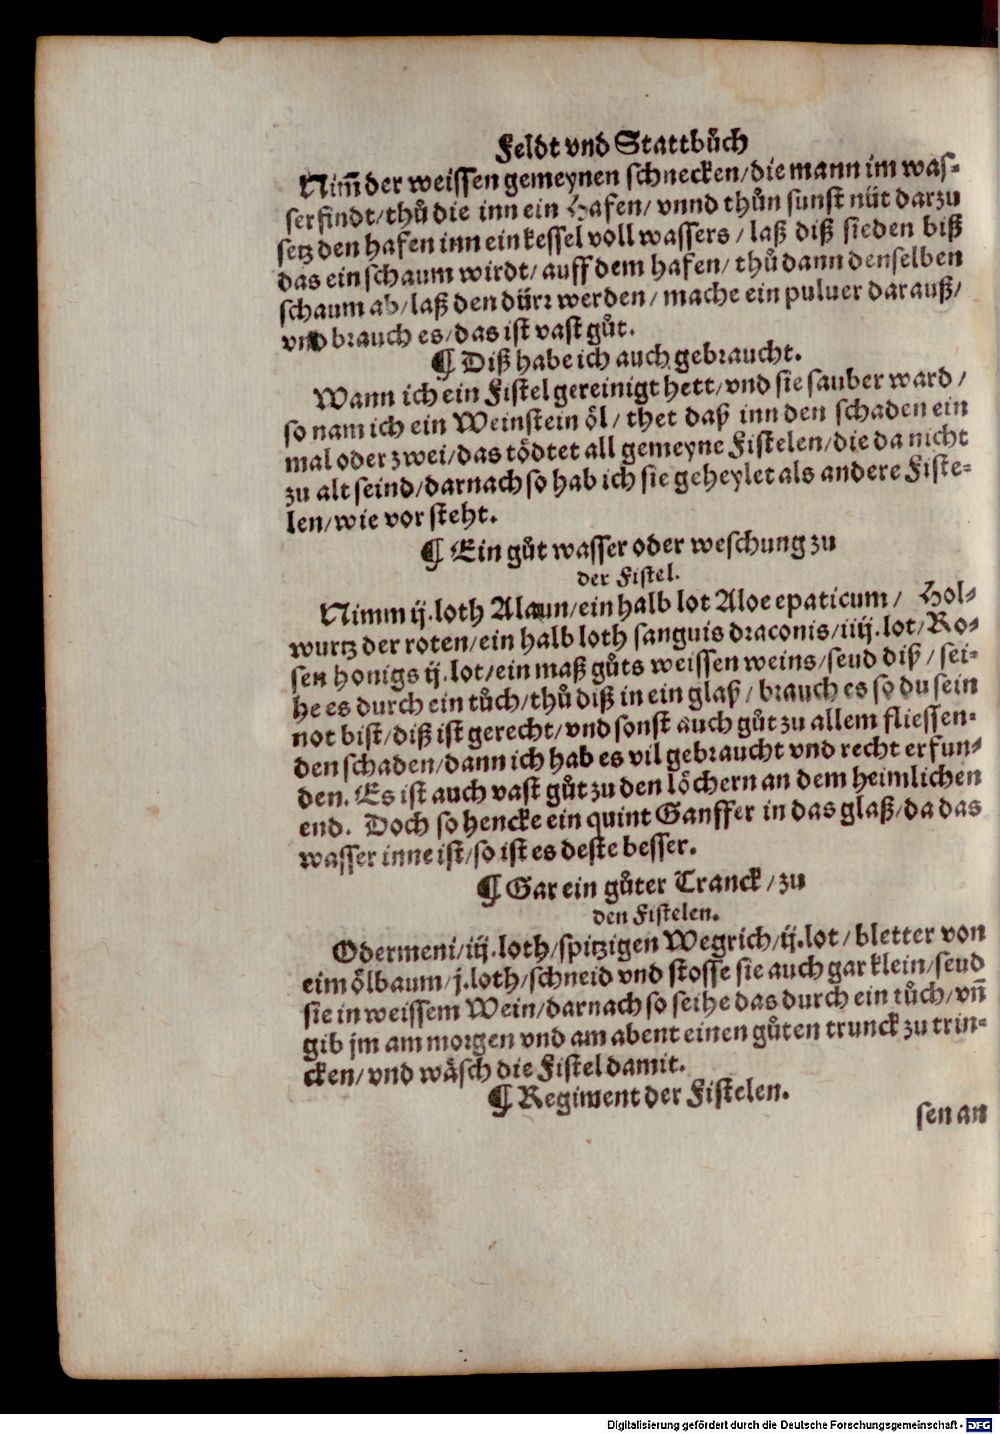 Feldt vnd Stattbuͦch
Nim̃ der weissen gemeynen schnecken/die mann im was-
ser findt/thuͦ die inn ein Hafen/ vnnd thuͦn sunst nüt darzu
setz den hafen inn ein kessel voll wassers / laß diß sieden biß
das ein schaum wirdt/ auff dem hafen/ thuͦ dann denselben
schaum ab/laß den dürr werden/ mache ein puluer darauß/
vnd brauch es/das ist vast guͦt.
¶ Diß habe ich auch gebraucht.
Wann ich ein Fistel gereinigt hett/vnd sie sauber ward /
so nam ich ein Weinstein oͤl/ thet daß inn den schaden ein
mal oder zwei/das toͤdtet all gemeyne Fistelen/die da nicht
zu alt seind/darnach so hab ich sie geheylet als andere Fiste-
len/wie vor steht.
¶ Ein guͦt wasser oder weschung zu
der Fistel.
Nimm ij.loth Alaun/ein halb lot Aloe epaticum/ Hol-
wurtz der roten/ein halb loth sanguis draconis/iiij.lot/Ro-
sen honigs ij.lot/ein maß guͦts weissen weins/seud diß/sei-
he es durch ein tuͦch/thuͦ diß in ein glaß/ brauch es so du sein
not bist/diß ist gerecht/vnd sonst auch guͦt zu allem fliessen-
den schaden/dann ich hab es vil gebraucht vnd recht erfun-
den. Es ist auch vast guͦt zu den loͤchern an dem heimlichen
end. Doch so hencke ein quint Ganffer in das glaß/da das
wasser inne ist/so ist es deste besser.
¶ Gar ein guͦter Tranck/zu
den Fistelen.
Odermeni/iij.loth/spitzigen Wegrich/ij.lot/bletter von
eim oͤlbaum/j.loth/schneid vnd stosse sie auch gar klein/seud
sie in weissem Wein/darnach so seihe das durch ein tuͦch/vñ
gib jm am morgen vnd am abent einen guͦten trunck zu trin-
cken/vnd waͤsch die Fistel damit.
¶ Regiment der Fistelen.
sen an
Digitalisierung gefördert durch die Deutsche Forschungsgemeinschaft - DFG